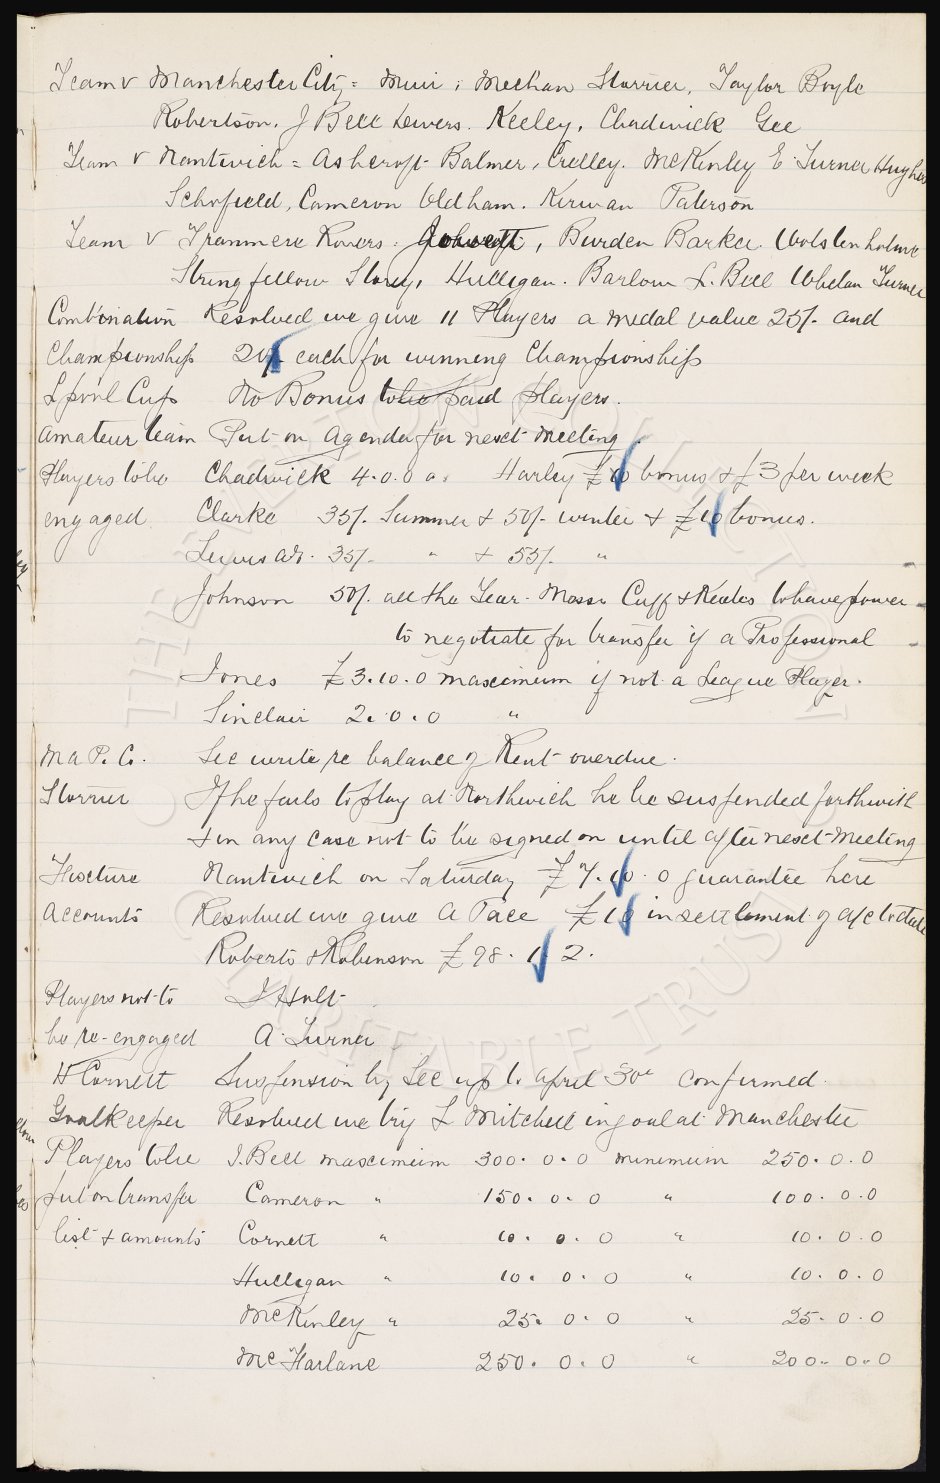 Team v Manchester City = Muir, Meehan Storrier, Taylor Boyle
Robertson. J Bell Dewers. Keeley, Chadwick Gee
Team v Nantwich = Ashcroft Balmer, Crelley. McKinley E. Turner Hughes
Schofield, Cameron Oldham. Kirwan Paterson
Team v Tranmere Rovers. , Burden Barker. Wolstenholme
Stringfellow Storey, Hulligan. Barlow L. Bell Whelan Turner
Combination Resolved we give 11 Players a medal value 25/- and
Championship 20/- each for winning Championship
Lpool Cup No Bonus to be paid Players.
Amateur team Put on Agenda for next Meeting.
Players to be Chadwick 4.0.0 a. Harley £10 bonus & £3 per week
engaged. Clarke 35/- Summer & 50/- winter & £10 bonus.
Lewis 35/- " & 55/- "
Johnson 50/- all the Year. Messrs Cuff & Keates to have power
to negotiate for transfer if a Professional
Jones £3.10.0 maximum if not a League Player.
Sinclair 2.0.0 "
Ma P. Co. Sec write re balance of Rent overdue.
Storrier If he fails to play at Northwich he be suspended forthwith
& in any case not to be signed on until after next Meeting
Fixture Nantwich on Saturday £7.10.0 guarantee here
Accounts Resolved we give A Pace £10 in settlement of a/c to date
Roberts & Robinson £98. 1 2.
Players not to J Holt
be re-engaged A. Turner
H Cornett Suspension by Sec up to April 30th confirmed.
Goalkeeper Resolved we try L Mitchell in goal at Manchester
Players to be J. Bell maximum 300. 0. 0 minimum 250. 0. 0
put on transfer Cameron " 150. 0. 0 " 100. 0. 0
list & amounts Cornett " 10. 0. 0 " 10. 0. 0
Hulligan " 10. 0. 0 " 10. 0. 0
McKinley " 25. 0. 0 " 25. 0. 0
McFarlane 250. 0. 0 " 200. 0. 0
THE EVERTON COLLECTION
CHARITABLE TRUST